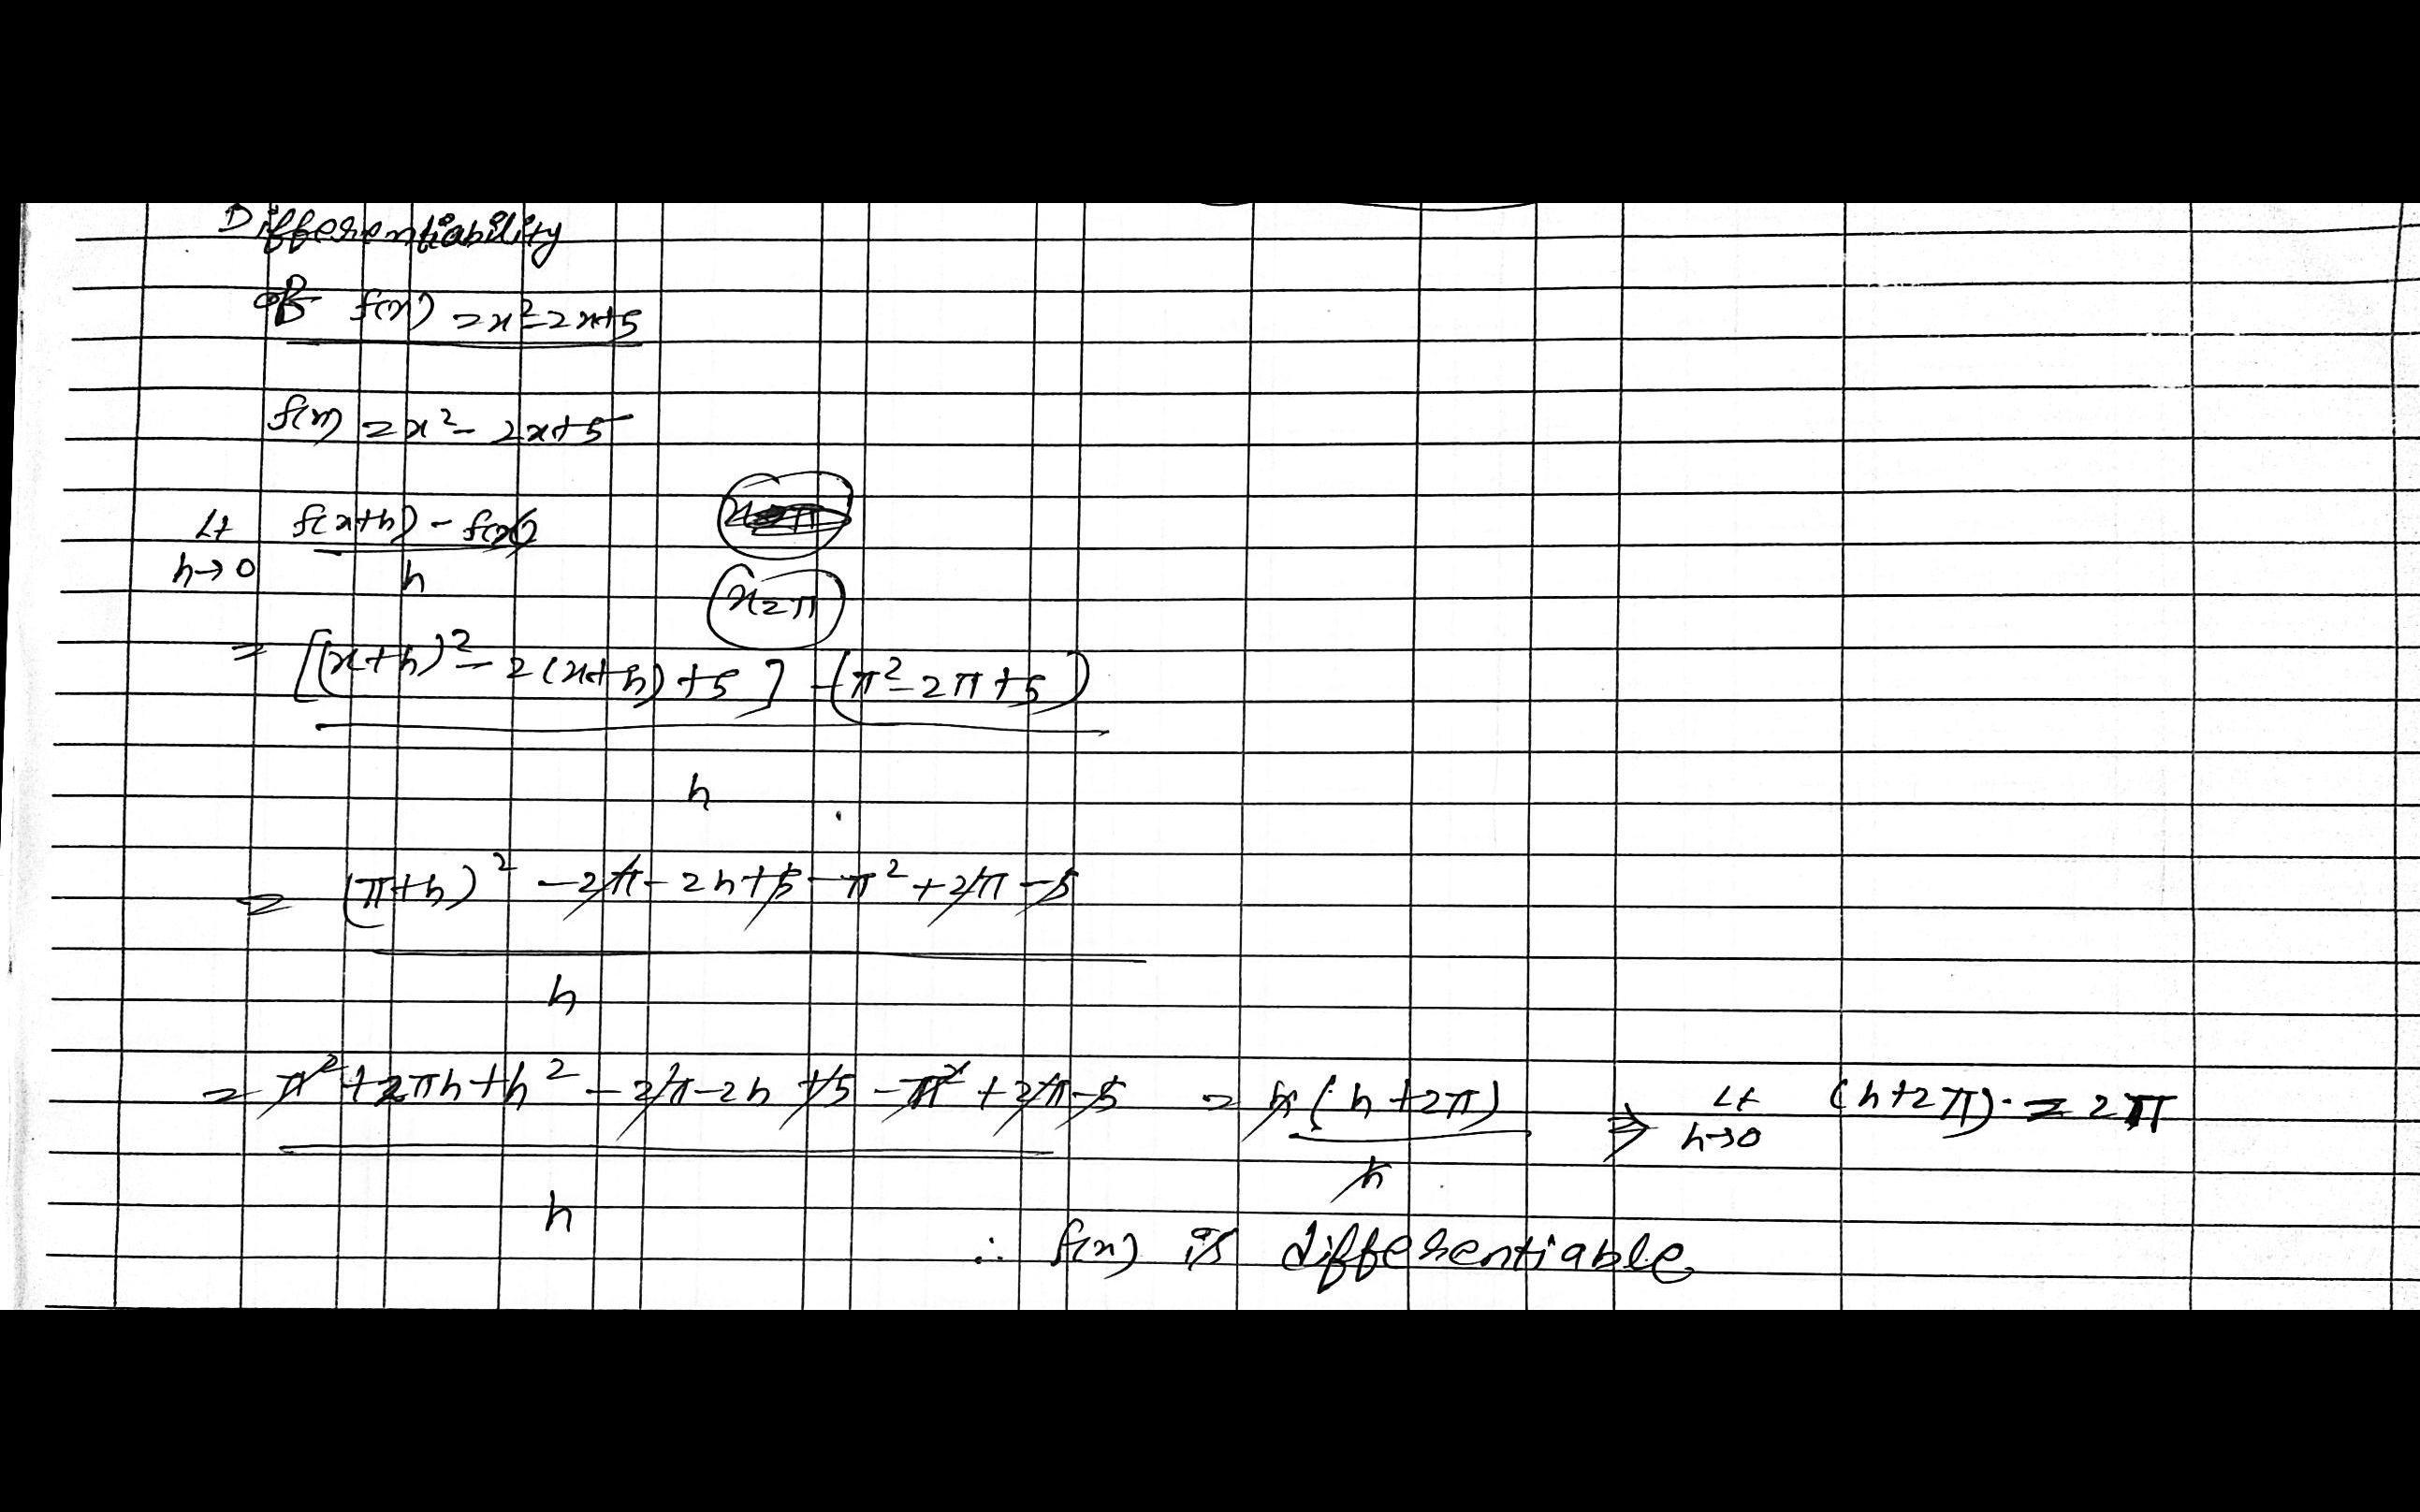 Differentiability
of f(x) = x² - 2x + 5
f(x) = x² - 2x + 5
Lt f(x+h) - f(x)
h→0 h
x = π
= [(x+h)² - 2(x+h) + 5] - (π² - 2π + 5)
h
= (π+h)² - 2π - 2h + 5 - π² + 2π - 5
h
= π² + 2πh + h² - 2π - 2h + 5 - π² + 2π - 5 = h(h + 2π) ⇒ Lt (h + 2π) = 2π
h h h→0
∴ f(x) is differentiable